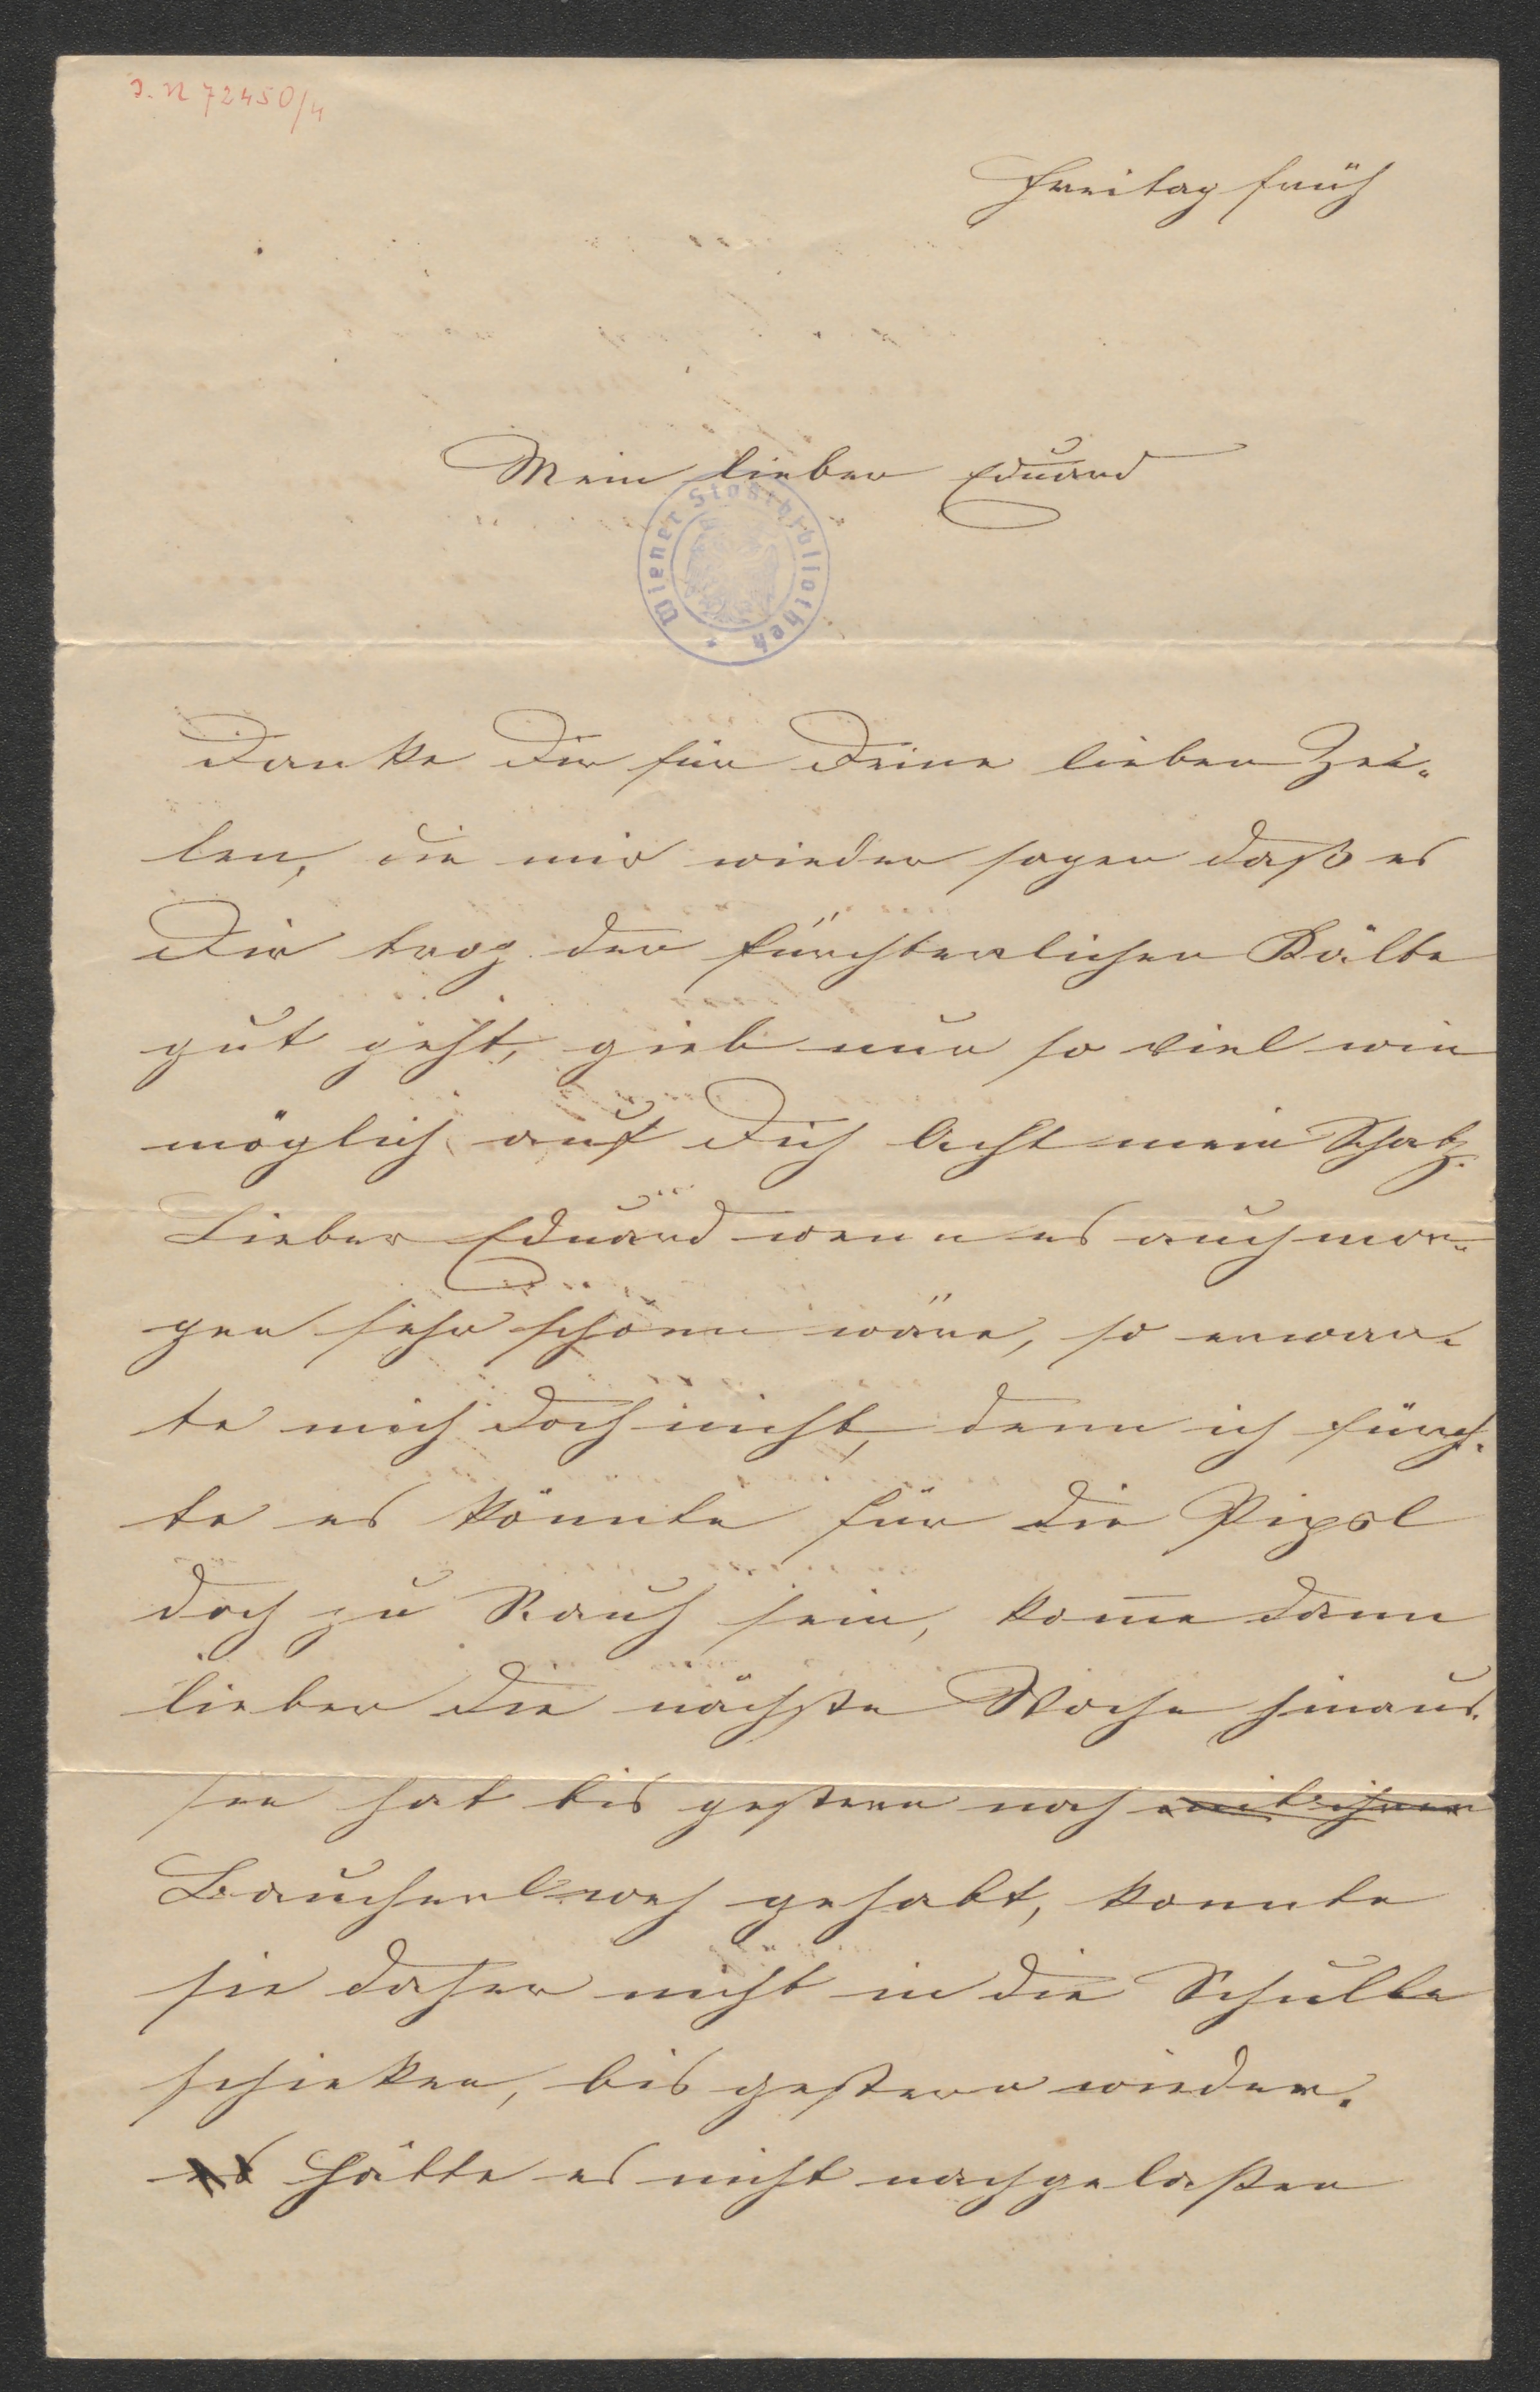 J. N 72450/4
Freitag früh
Mein lieber Eduard
Wiener Stadtbibliothek
Danke Dir für Deine lieben Zei-
len, die mir wieder sagen daß es
Dir troz der fürchterlichen Kälte
gut geht, gieb nur so viel wie
möglich auf Dich Acht mein Schatz.
Lieber Eduard wenn es auch mor-
gen sehr schön wäre, so erwar-
te mich doch nicht, denn ich fürch-
te es könnte für die Pipsl
doch zu Rauh sein, kom̅e dann
lieber die nächste Woche hinaus.
sie hat bis gestern noch mit ihren
Baucherlweh gehabt, konnte
sie daher nicht in die Schulle
schicken, bis gestern wieder.
es Hätte es nicht nachgelaßen